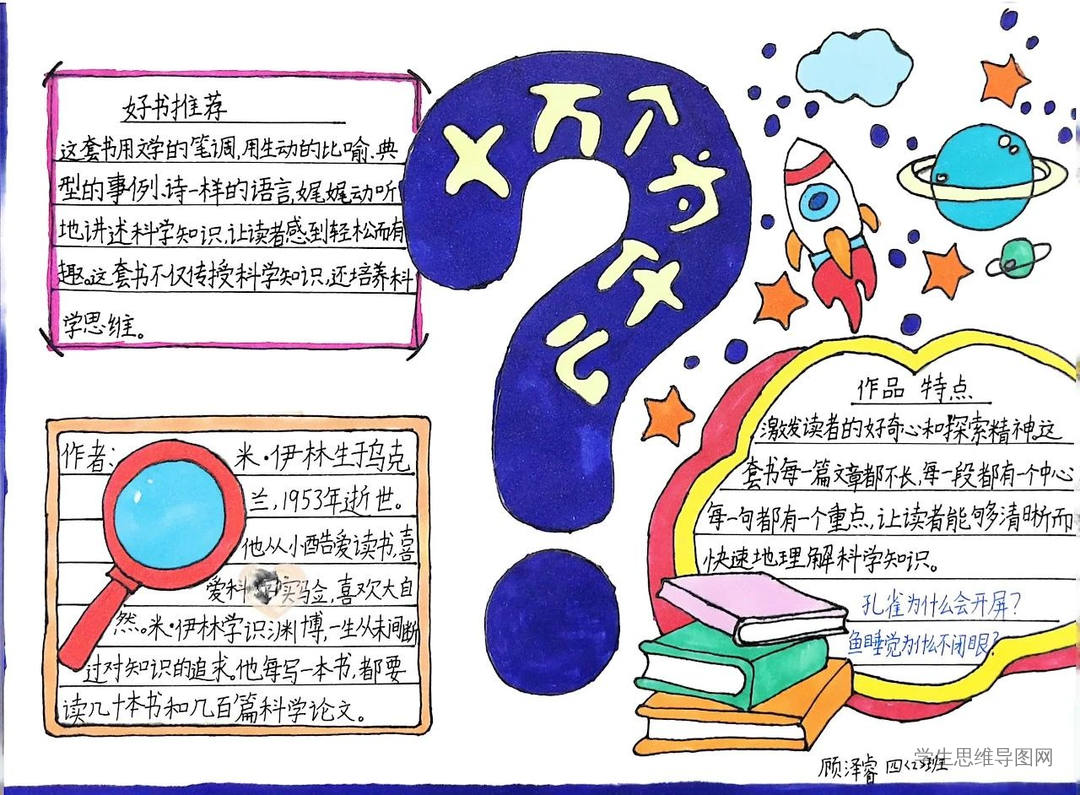 十万个为什么
好书推荐
这套书用文学的笔调,用生动的比喻、典
型的事例、诗一样的语言,娓娓动听
地讲述科学知识,让读者感到轻松而有
趣。这套书不仅传授科学知识,还培养科
学思维。
作者:米·伊林生于乌克
兰,1953年逝世。
他从小酷爱读书,喜
爱科学实验,喜欢大自
然。米·伊林学识渊博,一生从未间断
过对知识的追求。他每写一本书,都要
读几十本书和几百篇科学论文。
作品 特点
激发读者的好奇心和探索精神。这
套书每一篇文章都不长,每一段都有一个中心
每一句都有一个重点,让读者能够清晰而
快速地理解科学知识。
孔雀为什么会开屏?
鱼睡觉为什么不闭眼?
顾泽睿 四(2)班
学生思维导图网